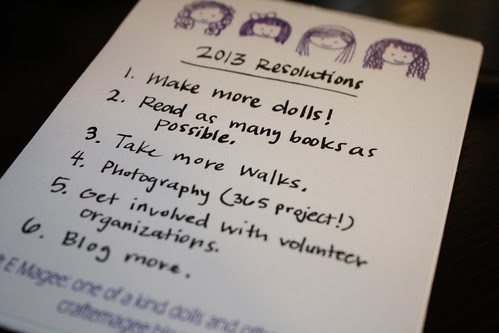 2013 Resolutions
1. Make more dolls!
2. Read as many books as
possible.
3. Take more walks.
4. Photography (365 project!)
5. Get involved with volunteer
organizations.
6. Blog more.
E Magee: one of a kind dolls and
craftemagee